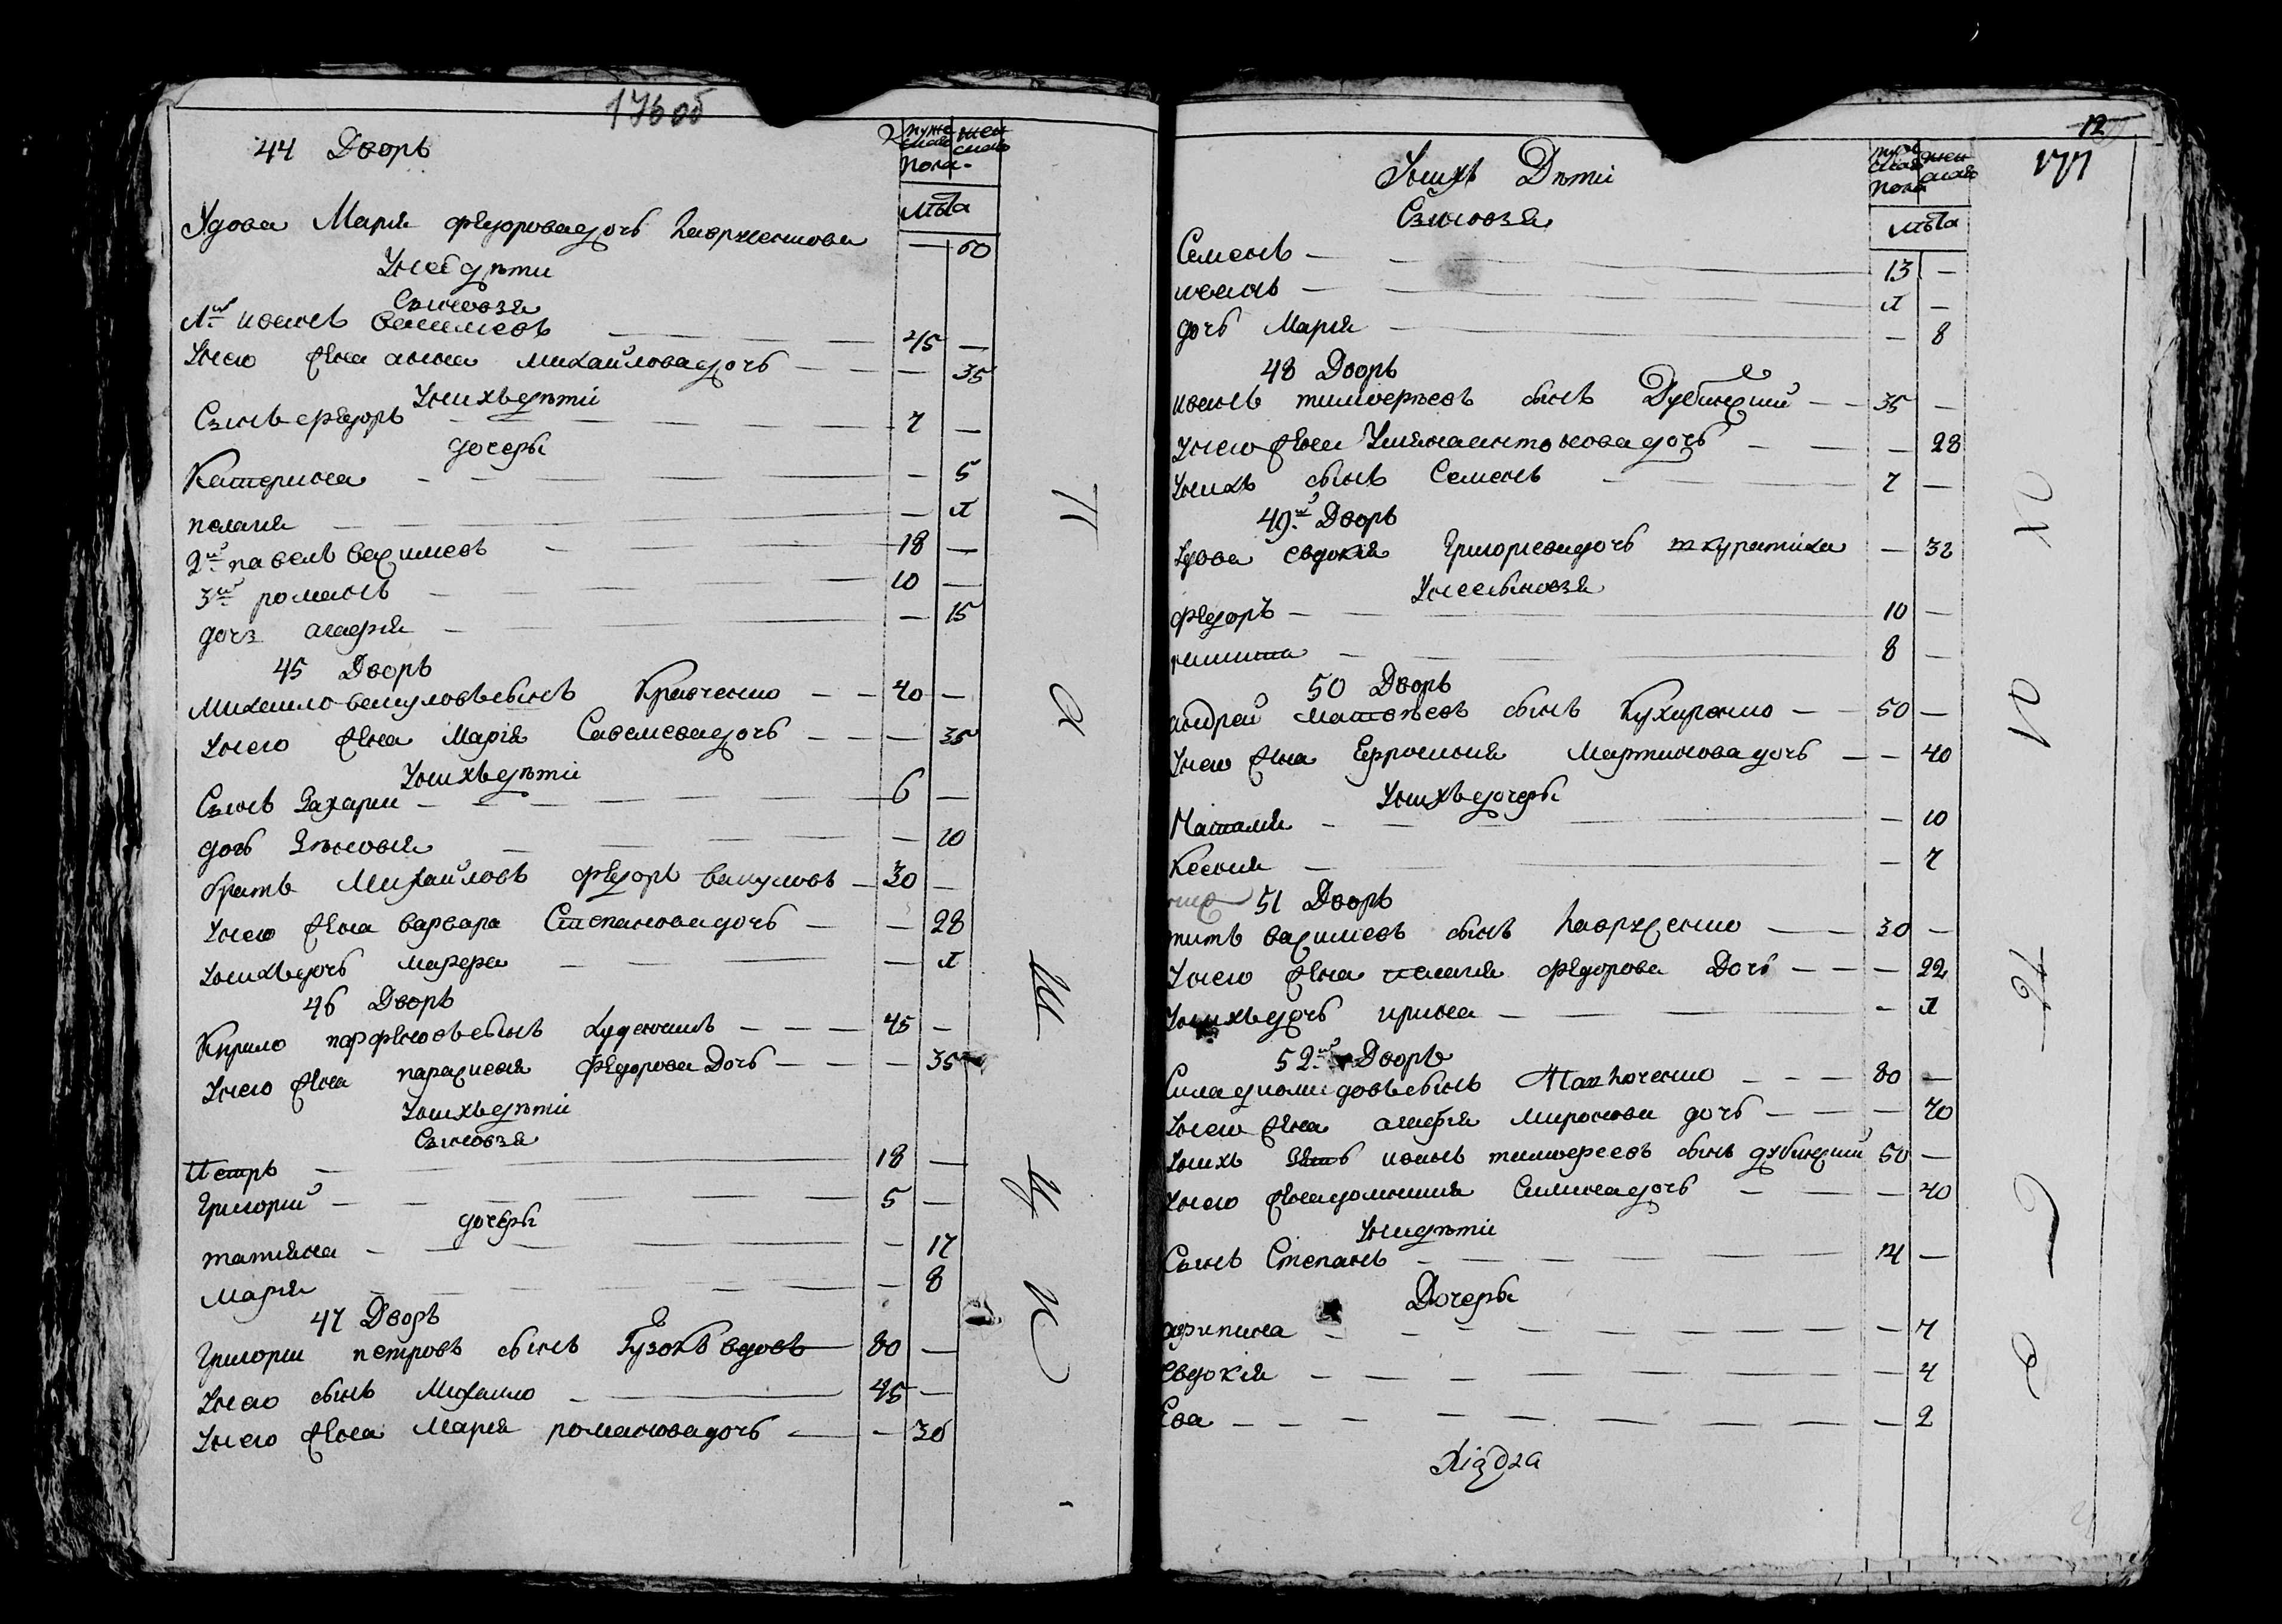 176 об
44 Дворъ
муже
скаго
жен
скаго
пола
лѣта
Удова Марія Федорова дочь Гаврженкова — 60
У нее дѣти
Сыновья
1й Иванъ Василиевъ 45 —
У него Жена анна михайлова дочь — 35
У нихъ дѣти
Сынъ федоръ 7 —
дочеры
Катерина — 5
пелагия — 1
2й павелъ василиевъ 18 —
3й романъ 10 —
дочъ агафія — 15
45 Дворъ
михаило вакуловъ сынъ Кравченко 40 —
У него Жена Марія Савелиева дочь — 35
У нихъ дѣти
Сынъ Захарии 6 —
дочь Зѣновия — 10
братъ Михайловъ федоръ вакуловъ 30 —
У него Жена варвара Степанова дочь — 28
У нихъ дочь марфа — 1
46 Дворъ
Кирило парфеновъ сынъ 45 —
У него Жена параскевия Федорова Дочь — 35
У нихъ дѣти
Сыновья
Петръ 18 —
Григорий 5 —
дочеры
татияна — 17
мария — 8
47 Дворъ
Григории петровъ сынъ Гузокъ вдовъ 80 —
У него сынъ Михаило 45 —
У него Жена Мария романова дочь — 30
12
177
У нихъ Дѣти
муже
скаго
жен
скаго
пола
лѣта
Сыновья
Семенъ 13 —
иванъ 1 —
дочь Мария — 8
48 Дворъ
иванъ тимофеевъ сынъ Дубинский 35 —
У него Жена Улияна антонова дочь — 28
У нихъ сынъ Семенъ 7 —
49й Дворъ
Удова евдокия Григориева дочь шкуратиха — 32
У нее сыновья
федоръ 10 —
никита 8 —
50 Дворъ
андрей матвѣевъ сынъ Кухаренко 50 —
У него Жена Ефросиния Мартинова дочь — 40
У нихъ дочеры
Наталия — 10
Ксения — 7
51 Дворъ
титъ василиевъ сынъ Гаврженко 30 —
У него Жена пелагия Федорова Дочь — 22
У нихъ дочь ирина — 1
52й Дворъ
Сила диомидовъ сынъ 80 —
У него Жена агафия миронова дочь — 70
У нихъ Зять иванъ тимофеевъ сынъ дубинский 50 —
У него Жена домникия Силина дочь — 40
У ни дѣти
Сынъ Степанъ 14 —
Дочеры
агрипина — 7
евдокия — 4
Ева — 2